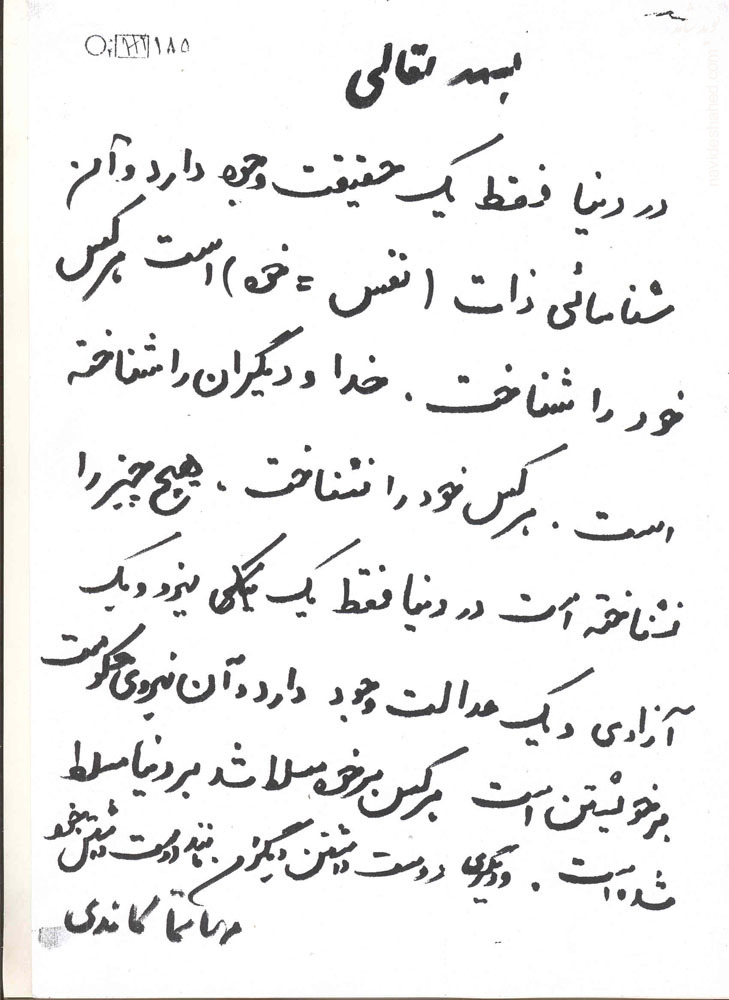 بسمه تعالی
در دنیا فقط یک حقیقت وجود دارد و آن
شناسائی ذات (نفس = خود) است هرکس
خود را شناخت . خدا و دیگران را شناخته
است . هرکس خود را نشناخت . هیچ چیز را
نشناخته است در دنیا فقط یک نیکی نیرو و یک
آزادی و یک عدالت وجود دارد و آن نیروی حکومت
بر خویشتن است هرکس بر خود مسلط شد بر دنیا مسلط
شده است . و دیگری دوست داشتن دیگران مانند دوست داشتن خود
مهاتما گاندی
navideshahed.com